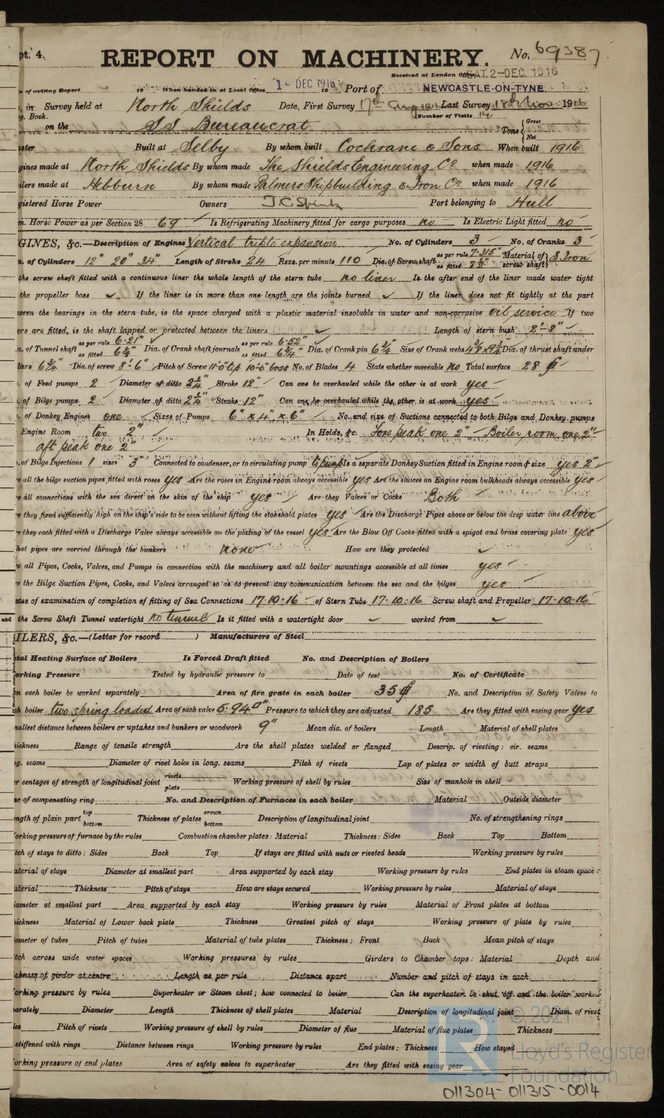 pt. 4.
REPORT ON MACHINERY. No. 69387
Received at London Office SAT. 2-DEC. 1916
of writing Report 19 When handed in at Local Office 1-DEC 1916 19 Port of NEWCASTLE-ON-TYNE
in Survey held at North Shields Date, First Survey 17th August Last Survey Nov 1916
g. Book. (Number of Visits 14
on the SS Bureaucrat Tons { Gross Net
ster Built at Selby By whom built Cochrane & Sons When built 1916
gines made at North Shields By whom made The Shields Engineering Co when made 1916
ilers made at Hebburn By whom made Palmers Shipbuilding & Iron Co when made 1916
gistered Horse Power Owners T.C. Spink Port belonging to Hull
m. Horse Power as per Section 28 69 Is Refrigerating Machinery fitted for cargo purposes no Is Electric Light fitted no
GINES, &c.—Description of Engines Vertical triple expansion No. of Cylinders 3 No. of Cranks 3
. of Cylinders 12" 20" 34" Length of Stroke 24 Revs. per minute 110 Dia. of Screw shaft as per rule 7.315" as fitted 7½" Material of screw shaft } S. Iron
the screw shaft fitted with a continuous liner the whole length of the stern tube no liner Is the after end of the liner made water tight
the propeller boss ✓ If the liner is in more than one length are the joints burned ✓ If the liner does not fit tightly at the part
ween the bearings in the stern tube, is the space charged with a plastic material insoluble in water and non-corrosive oil service If two
ers are fitted, is the shaft lapped or protected between the liners ✓ Length of stern bush 2'-8"
. of Tunnel shaft as per rule 6.21" as fitted 6¾" Dia. of Crank shaft journals as per rule 6.52" as fitted 6¾" Dia. of Crank pin 6¾" Size of Crank webs Dia. of thrust shaft under
lars 6¾" Dia. of screw 8'-6" Pitch of Screw 10'-6" boss No. of Blades 4 State whether moveable no Total surface 28 ft
. of Feed pumps 2 Diameter of ditto 2¼" Stroke 12" Can one be overhauled while the other is at work yes
. of Bilge pumps 2 Diameter of ditto 2¼" Stroke 12" Can one be overhauled while the other is at work yes
. of Donkey Engines one Sizes of Pumps 6" x 4" x 6" No. and size of Suctions connected to both Bilge and Donkey pumps
Engine Room two 2" In Holds, &c. Fore peak one 2" Boiler room one 2"
aft peak one 2"
. of Bilge Injections 1 sizes 3" Connected to condenser, or to circulating pump Is a separate Donkey Suction fitted in Engine room & size yes 2"
e all the bilge suction pipes fitted with roses yes Are the roses in Engine room always accessible yes Are the sluices on Engine room bulkheads always accessible yes
e all connections with the sea direct on the skin of the ship yes Are they Valves or Cocks Both
e they fixed sufficiently high on the ship's side to be seen without lifting the stokehold plates yes Are the Discharge Pipes above or below the deep water line above
e they each fitted with a Discharge Valve always accessible on the plating of the vessel yes Are the Blow Off Cocks fitted with a spigot and brass covering plate yes
hat pipes are carried through the bunkers none How are they protected ✓
e all Pipes, Cocks, Valves, and Pumps in connection with the machinery and all boiler mountings accessible at all times yes
e the Bilge Suction Pipes, Cocks, and Valves arranged so as to prevent any communication between the sea and the bilges yes
tes of examination of completion of fitting of Sea Connections 17.10.16 of Stern Tube 17.10.16 Screw shaft and Propeller 17.10.16
the Screw Shaft Tunnel watertight no tunnel Is it fitted with a watertight door ✓ worked from ✓
ILERS, &c.—(Letter for record ) Manufacturers of Steel
tal Heating Surface of Boilers Is Forced Draft fitted No. and Description of Boilers
orking Pressure Tested by hydraulic pressure to Date of test No. of Certificate
n each boiler be worked separately Area of fire grate in each boiler 35 ft No. and Description of Safety Valves to
ch boiler two spring loaded Area of each valve 5.94" Pressure to which they are adjusted 185 Are they fitted with easing gear yes
mallest distance between boilers or uptakes and bunkers or woodwork 9" Mean dia. of boilers Length Material of shell plates
hickness Range of tensile strength Are the shell plates welded or flanged Descrip. of riveting: cir. seams
ng. seams Diameter of rivet holes in long. seams Pitch of rivets Lap of plates or width of butt straps
er centages of strength of longitudinal joint rivets plate Working pressure of shell by rules Size of manhole in shell
e of compensating ring No. and Description of Furnaces in each boiler Material Outside diameter
ngth of plain part top bottom Thickness of plates crown bottom Description of longitudinal joint No. of strengthening rings
orking pressure of furnace by the rules Combustion chamber plates: Material Thickness: Sides Back Top Bottom
tch of stays to ditto: Sides Back Top If stays are fitted with nuts or riveted heads Working pressure by rules
aterial of stays Diameter at smallest part Area supported by each stay Working pressure by rules End plates in steam space:
aterial Thickness Pitch of stays How are stays secured Working pressure by rules Material of stays
iameter at smallest part Area supported by each stay Working pressure by rules Material of Front plates at bottom
hickness Material of Lower back plate Thickness Greatest pitch of stays Working pressure of plate by rules
iameter of tubes Pitch of tubes Material of tube plates Thickness: Front Back Mean pitch of stays
itch across wide water spaces Working pressures by rules Girders to Chamber tops: Material Depth and
ickness of girder at centre Length as per rule Distance apart Number and pitch of stays in each
orking pressure by rules Superheater or Steam chest; how connected to boiler Can the superheater be shut off and the boiler worked
parately Diameter Length Thickness of shell plates Material Description of longitudinal joint Diam. of rivet
les Pitch of rivets Working pressure of shell by rules Diameter of flue Material of flue plates Thickness
stiffened with rings Distance between rings Working pressure by rules End plates: Thickness How stayed
orking pressure of end plates Area of safety valves to superheater Are they fitted with easing gear
© 2021
Lloyd's Register
Foundation
011304-011315-0014